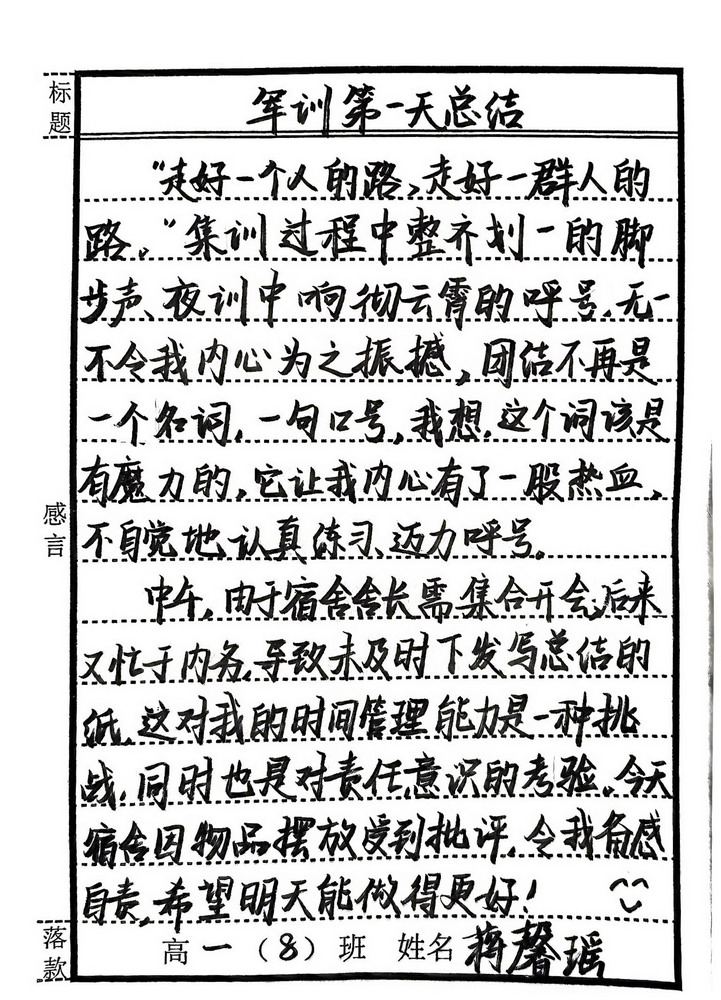 标题
军训第一天总结
“走好一个人的路,走好一群人的
路。”集训过程中整齐划一的脚
步声、夜训中响彻云霄的呼号,无一
不令我内心为之振撼,团结不再是
一个名词,一句口号,我想,这个词该是
有魔力的,它让我内心有了一股热血,
感言
不自觉地认真练习、迈力呼号。
中午,由于宿舍舍长需集合开会,后来
又忙于内务,导致未及时下发写总结的
纸,这对我的时间管理能力是一种挑
战,同时也是对责任意识的考验。今天
宿舍因物品摆放受到批评,令我备感
自责,希望明天能做得更好!
落款
高一(8)班 姓名 蒋馨瑶